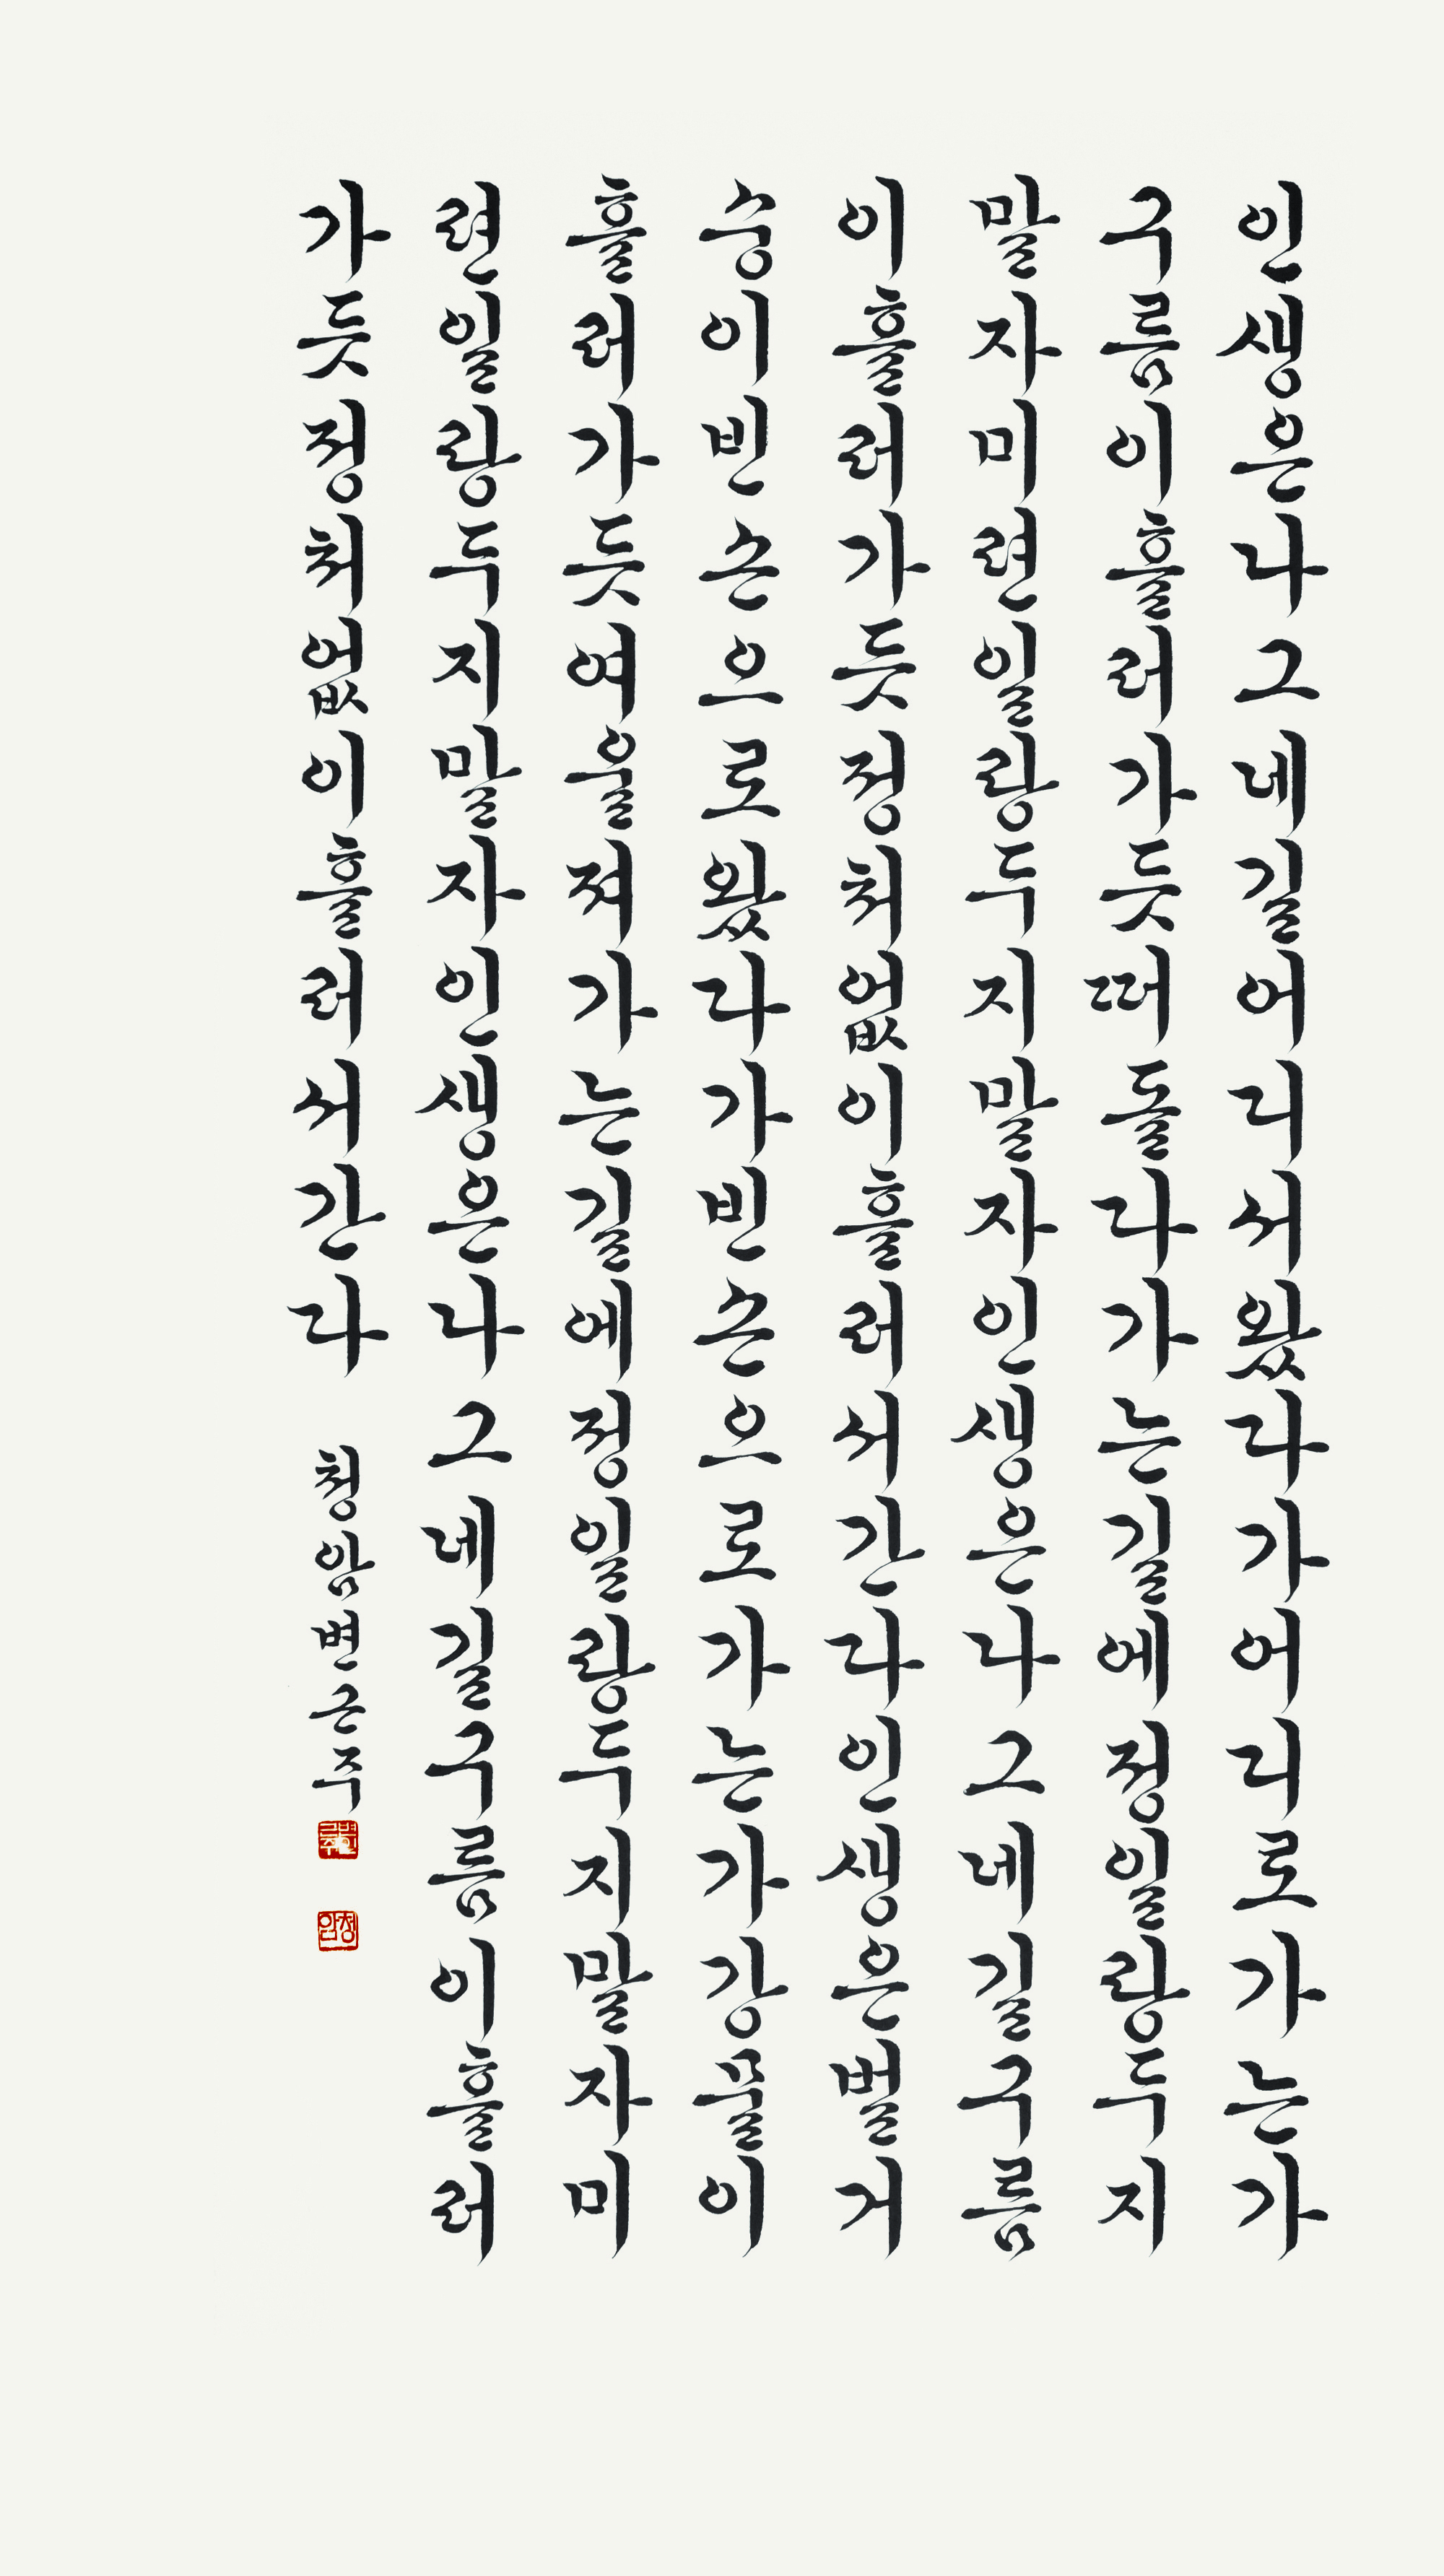 인생은나그네길어디서왔다가어디로가는가
구름이흘러가듯떠돌다가는길에정일랑두지
말자미련일랑두지말자인생은나그네길구름
이흘러가듯정처없이흘러서간다인생은벌거
숭이빈손으로왔다가빈손으로가는가강물이
흘러가듯여울져가는길에정일랑두지말자미
련일랑두지말자인생은나그네길구름이흘러
가듯정처없이흘러서간다 청암변근주